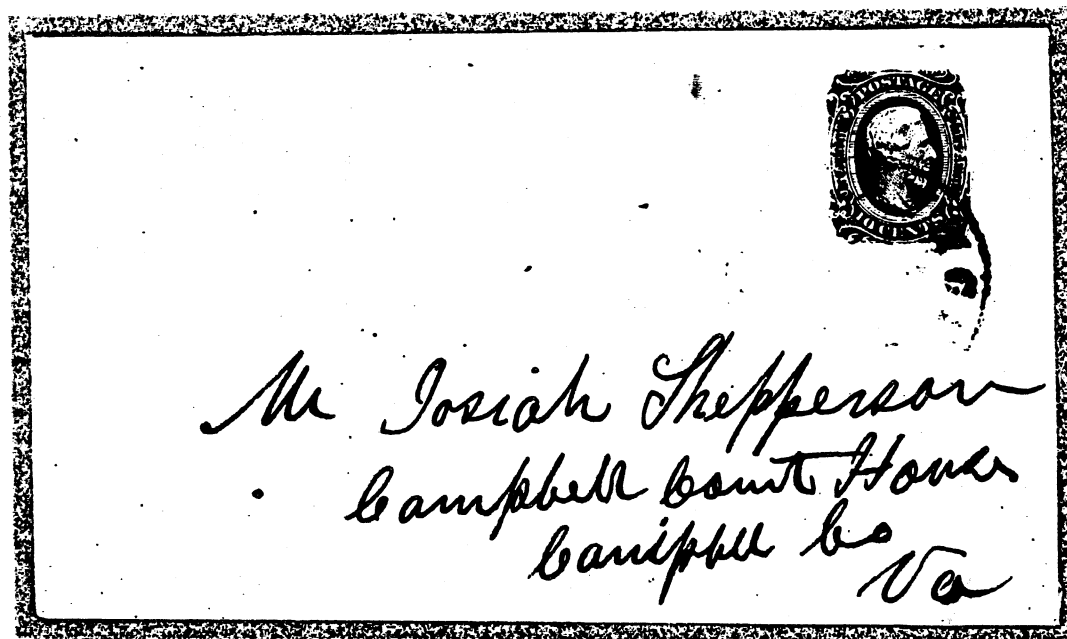 POSTAGE
Mr Josiah Shepperson
Campbell Court House
Campbell Co
Va